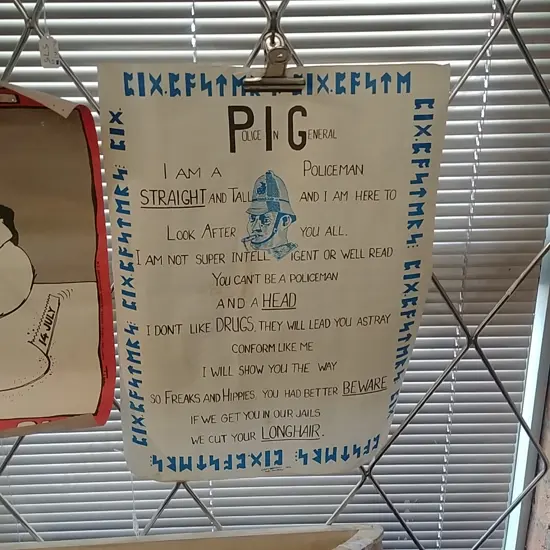 PIG
POLICE IN GENERAL
I AM A POLICEMAN
STRAIGHT AND TALL AND I AM HERE TO
LOOK AFTER YOU ALL.
I AM NOT SUPER INTELLIGENT OR WELL READ
YOU CAN'T BE A POLICEMAN
AND A HEAD
I DON'T LIKE DRUGS, THEY WILL LEAD YOU ASTRAY
CONFORM LIKE ME
I WILL SHOW YOU THE WAY
SO FREAKS AND HIPPIES, YOU HAD BETTER BEWARE
IF WE GET YOU IN OUR JAILS
WE CUT YOUR LONGHAIR.
14 JULY